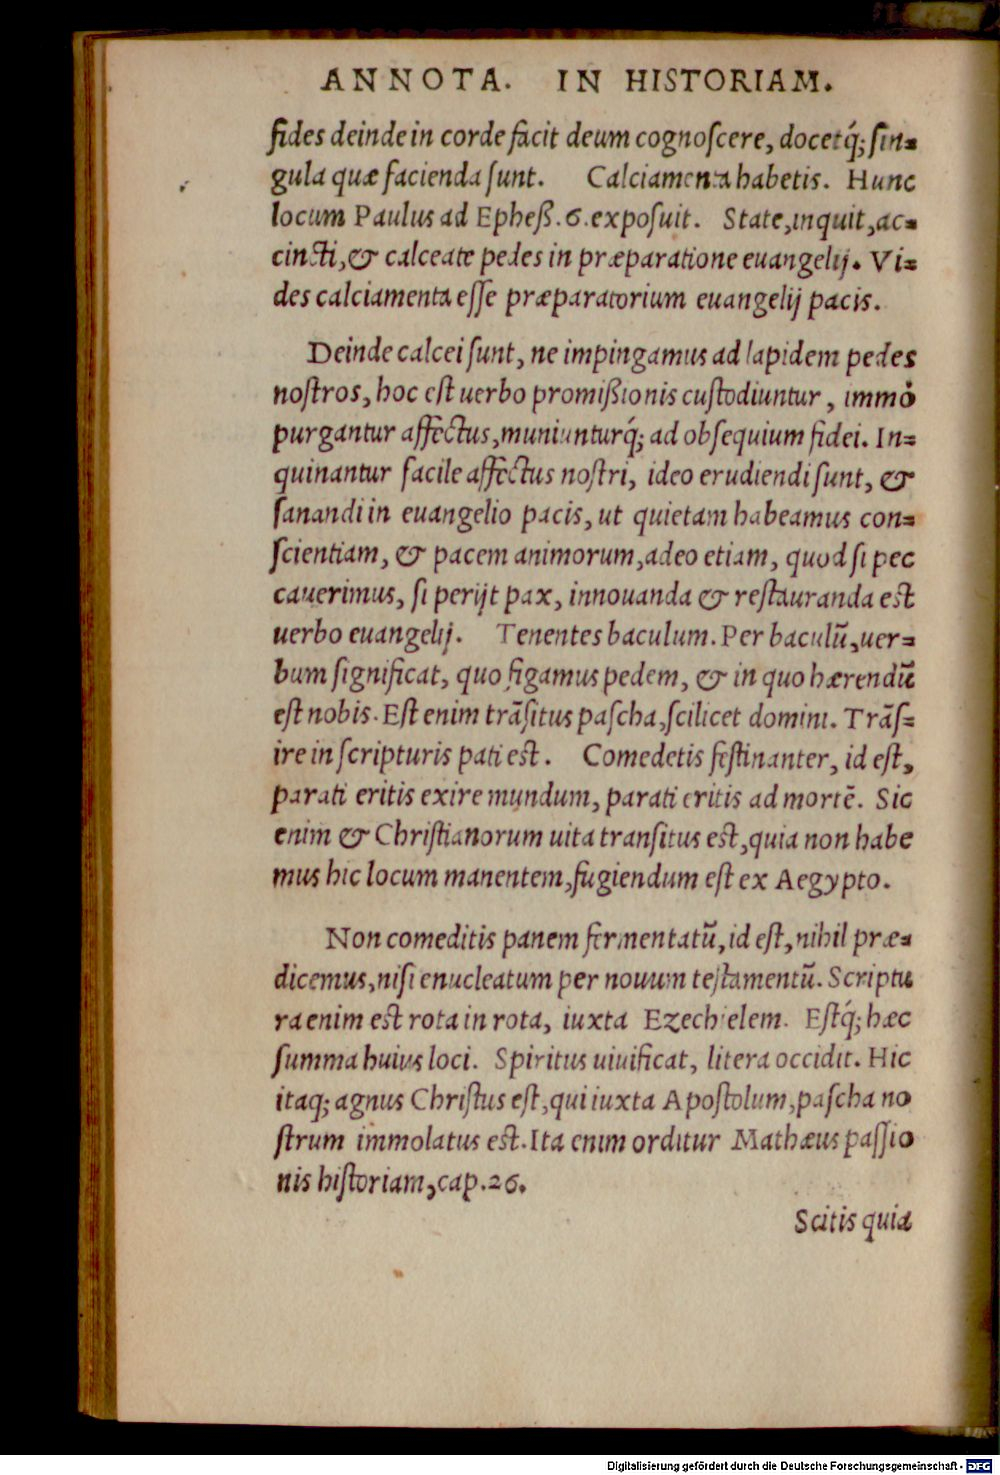 ANNOTA. IN HISTORIAM.
fides deinde in corde facit deum cognoſcere, docetq́; ſin-
gula quæ facienda ſunt. Calciamenta habetis. Hunc
locum Paulus ad Epheß. 6. expoſuit. State, inquit, ac-
cincti, & calceate pedes in præparatione euangelij. Vi-
des calciamenta eſſe præparatorium euangelij pacis.
Deinde calcei ſunt, ne impingamus ad lapidem pedes
noſtros, hoc eſt uerbo promißionis cuſtodiuntur, immò
purgantur affectus, muniunturq́; ad obſequium fidei. In-
quinantur facile affectus noſtri, ideo erudiendi ſunt, &
ſanandi in euangelio pacis, ut quietam habeamus con-
ſcientiam, & pacem animorum, adeo etiam, quod ſi pec
cauerimus, ſi perijt pax, innouanda & reſtauranda eſt
uerbo euangelij. Tenentes baculum. Per baculũ, uer-
bum ſignificat, quo figamus pedem, & in quo hærendũ
eſt nobis. Eſt enim trãſitus paſcha, ſcilicet domini. Trãſ-
ire in ſcripturis pati eſt. Comedetis feſtinanter, id eſt,
parati eritis exire mundum, parati eritis ad mortẽ. Sic
enim & Chriſtianorum uita tranſitus eſt, quia non habe
mus hic locum manentem, fugiendum eſt ex Aegypto.
Non comeditis panem fermentatũ, id eſt, nihil præ-
dicemus, niſi enucleatum per nouum teſtamentũ. Scriptu
ra enim eſt rota in rota, iuxta Ezechielem. Eſtq́; hæc
ſumma huius loci. Spiritus uiuificat, litera occidit. Hic
itaq; agnus Chriſtus eſt, qui iuxta Apoſtolum, paſcha no
ſtrum immolatus eſt. Ita enim orditur Mathæus paſſio
nis hiſtoriam, cap. 26.
Scitis quia
Digitalisierung gefördert durch die Deutsche Forschungsgemeinschaft - DFG